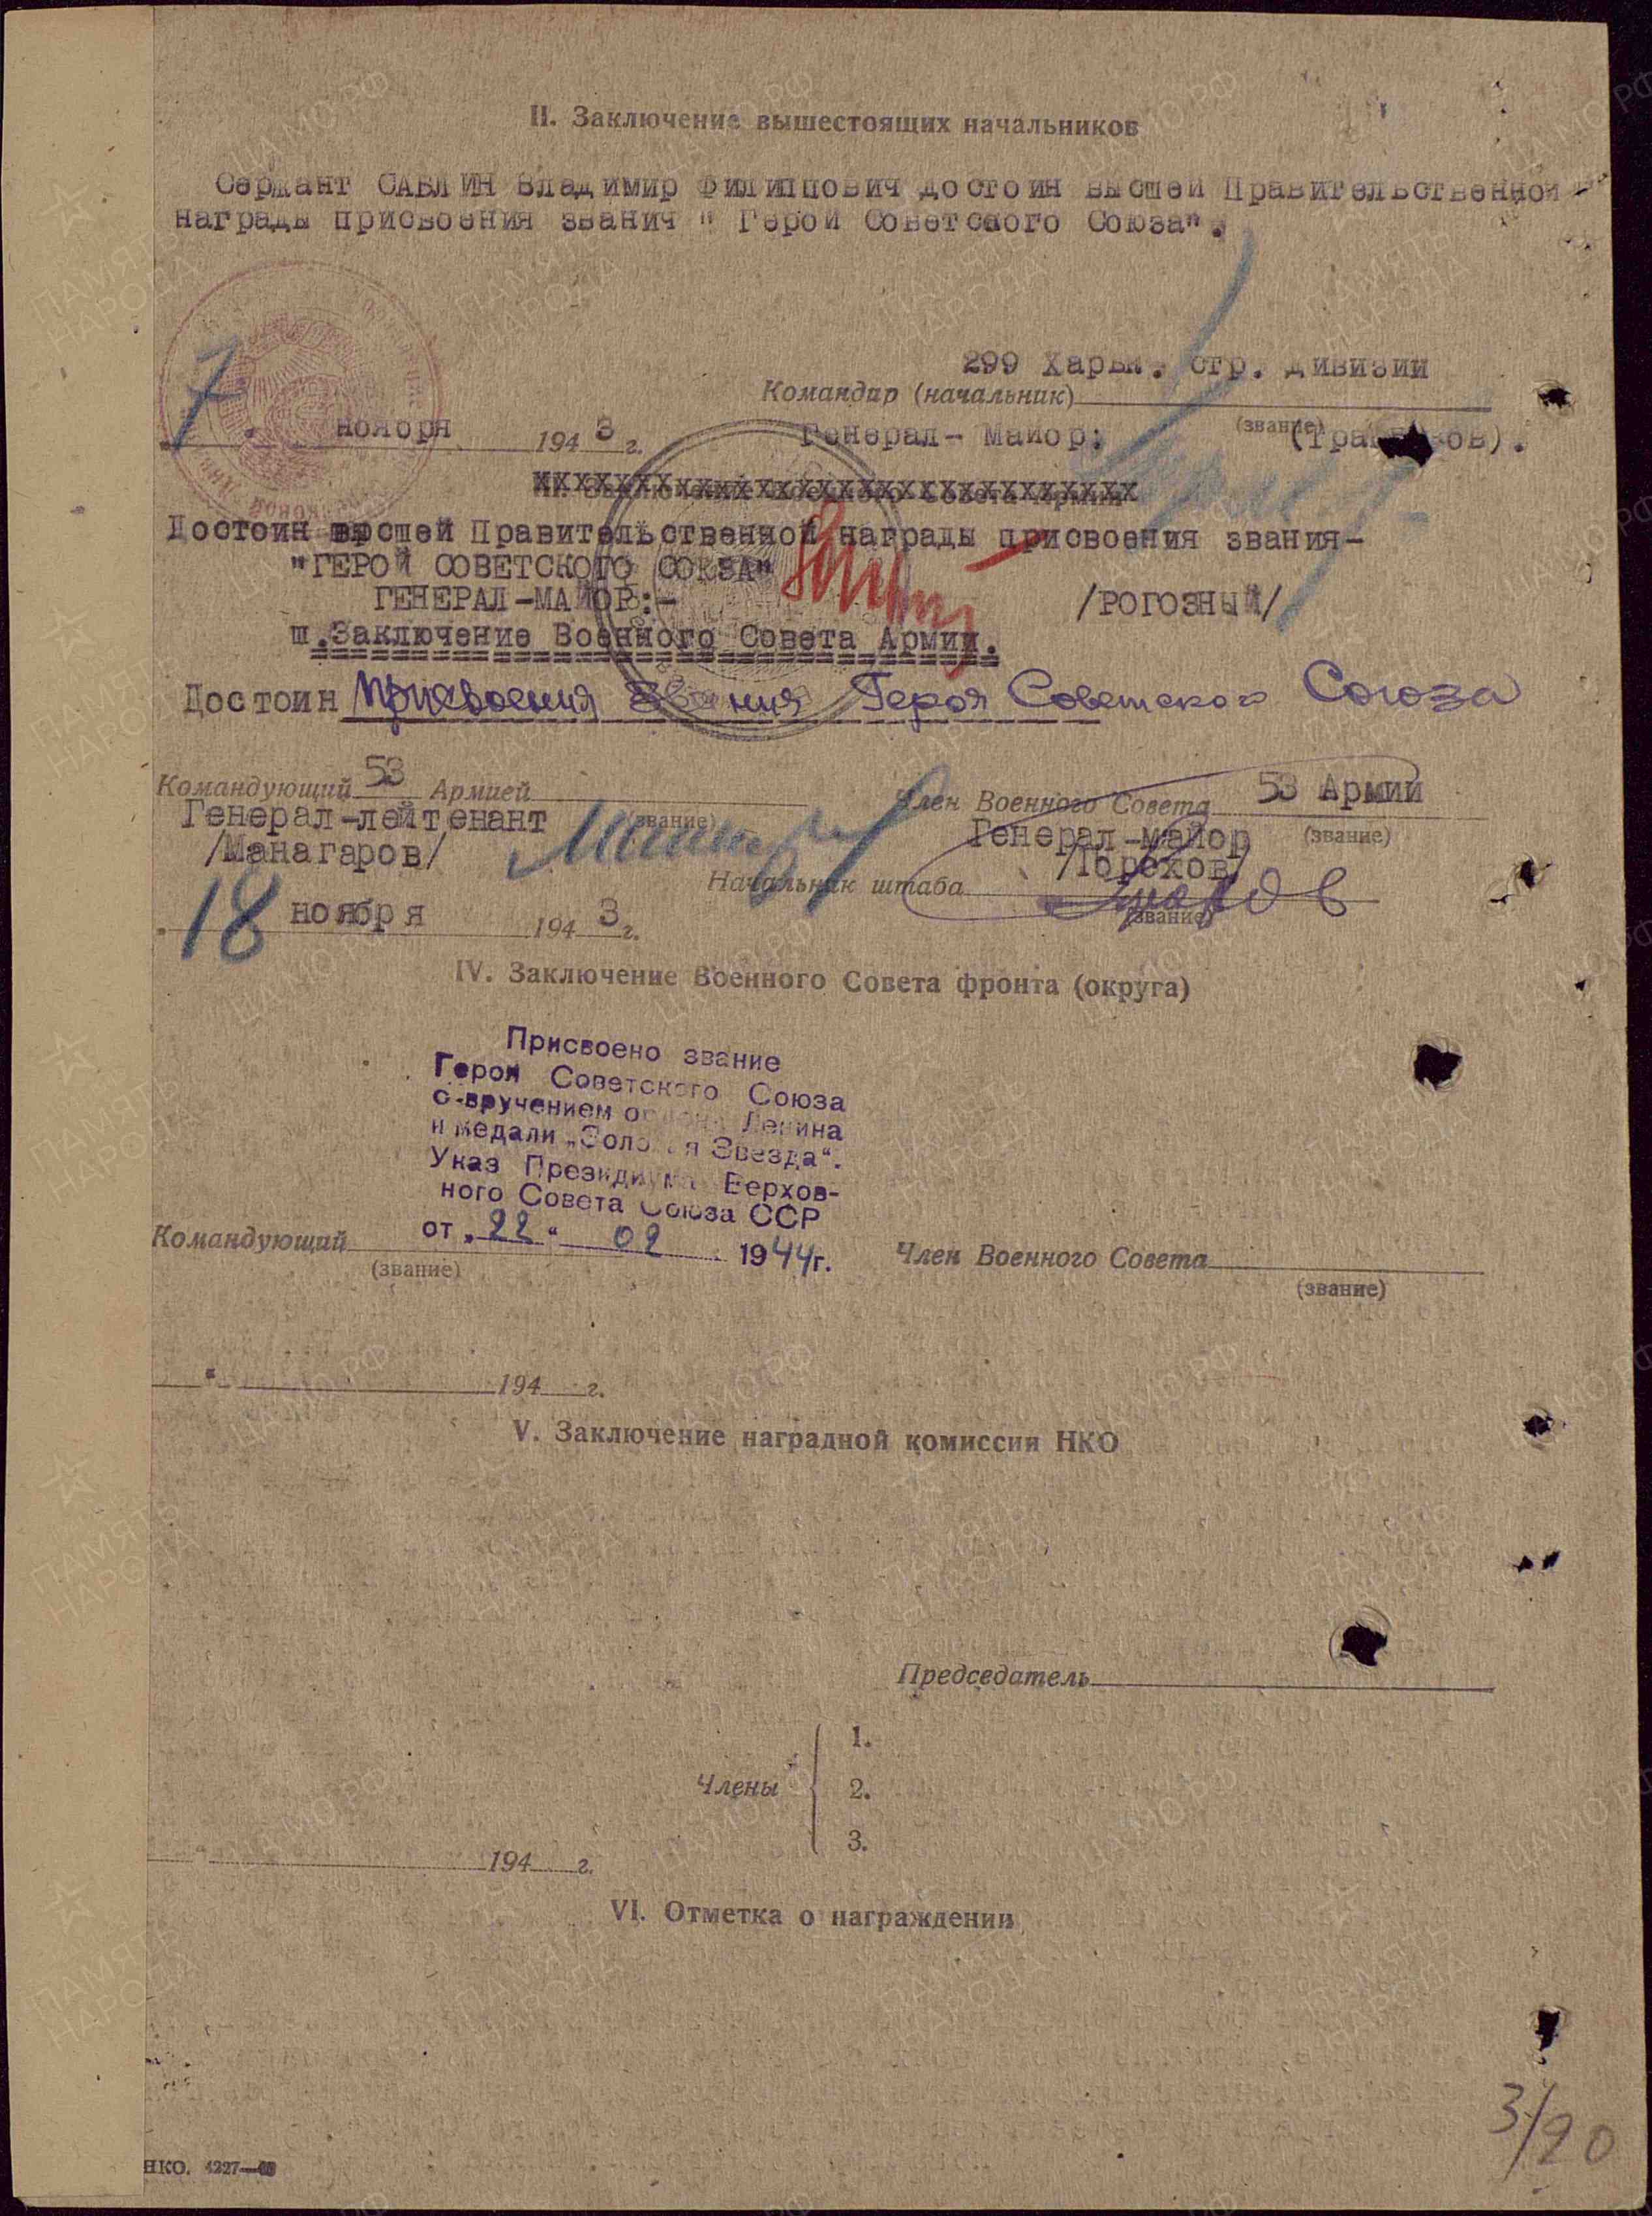 II. Заключение вышестоящих начальников
Сержант САБЛИН Владимир Филиппович достоин высшей Правительственной
награды присвоения званич " Герой Советского Союза".
299 Харьк. стр. дивизии
Командир (начальник)
(звание)
7 ноября 1943 г.
Генерал- Майор:
Достоин высшей Правительственной награды присвоения звания-
"ГЕРОЙ СОВЕТСКОГО СОЮЗА"
ГЕНЕРАЛ-МАЙОР:- /РОГОЗНЫЙ/
ш.Заключение Военного Совета Армии.
Достоин присвоения звания Героя Советского Союза
Командующий 53 Армией
Член Военного Совета 53 Армии
Генерал-лейтенант (звание)
Генерал-майор (звание)
/Манагаров/
/Горохов/
Начальник штаба
(звание)
18 ноября 1943 г.
IV. Заключение Военного Совета фронта (округа)
Присвоено звание
Героя Советского Союза
с вручением ордена Ленина
и медали „Золотая Звезда“.
Указ Президиума Верхов-
ного Совета Союза ССР
от „22“ 02 1944г.
Командующий
(звание)
Член Военного Совета
(звание)
" 194 г.
V. Заключение наградной комиссии НКО
Председатель
Члены
1.
2.
3.
" 194 г.
VI. Отметка о награждении
3/20
НКО. 4227—
ПАМЯТЬ НАРОДА
ЦАМО.РФ